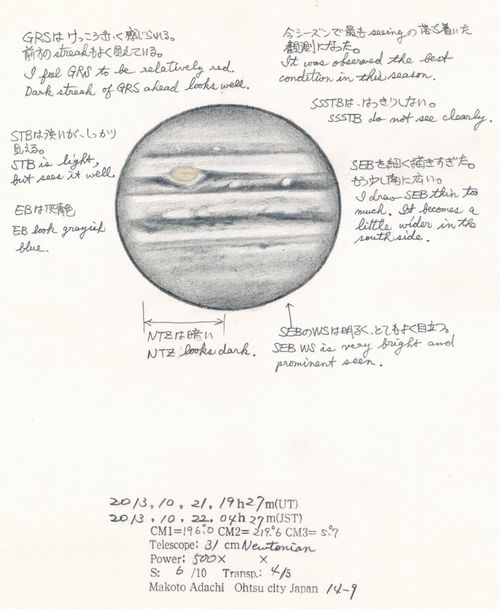 GRSはけっこう赤く感じられる。
前方のstreakもよく見えている。
I feel GRS to be relatively red.
Dark streak of GRS ahead looks well.
今シーズンで最もseeingの落ち着いた
観測になった。
It was observed the best
condition in this season.
SSSTBは、はっきりしない。
SSSTB do not see clearly.
STBは淡いが、しっかり
見える。
STB is light,
but sees it well.
SEBを細く描きすぎた。
もう少し南に広い。
I draw SEB thin too
much. It becomes a
little wider in the
south side.
EBは灰青色
EB look grayish
blue.
NTZは暗い
NTZ looks dark.
SEBのWSは明るく、とてもよく目立つ。
SEB WS is very bright and
prominent seen.
2013.10.21.19h27m(UT)
2013.10.22.04h27m(JST)
CM1=196.°0 CM2=219.°6 CM3=5.°7
Telescope: 31 cm Newtonian
Power: 500× ×
S: 6 /10 Transp.: 4/5
Makoto Adachi Ohtsu city Japan 14-9